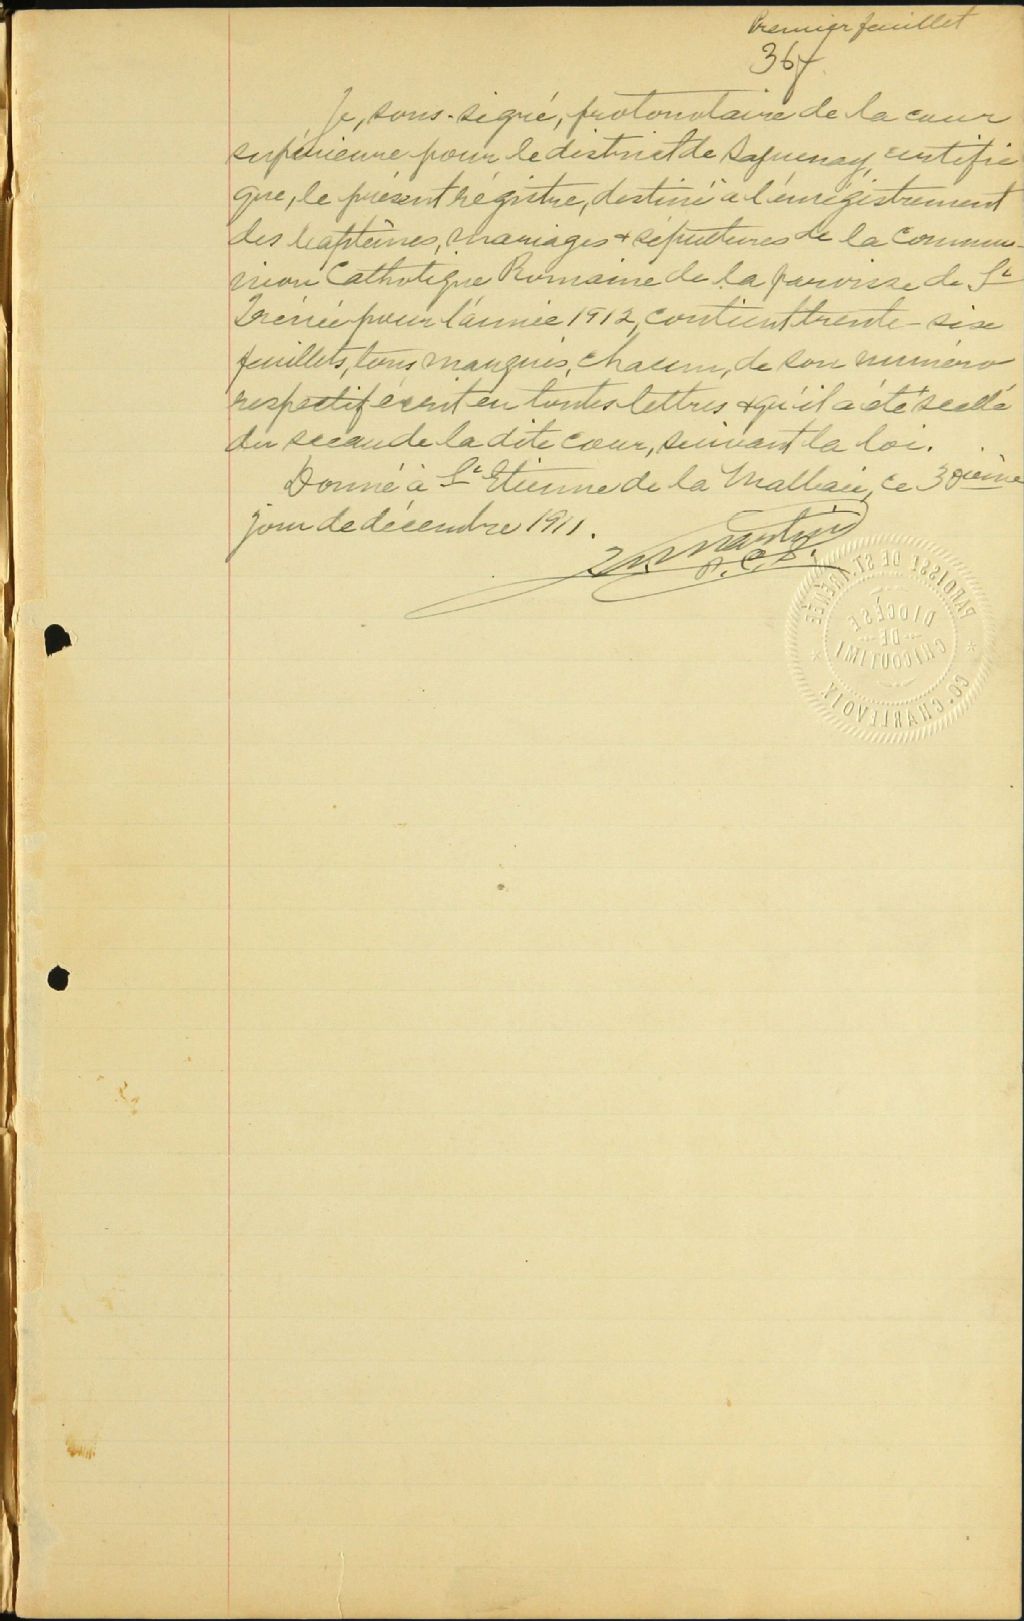 Premier feuillet
36f
Je, sous-signé, protonotaire de la cour
supérieure pour le district de Saguenay, certifie
que, le présent régistre, destiné à l'enrégistrement
des baptêmes, mariages & sépultures de la Commu-
nion Catholique Romaine de la paroisse de St
Irénée pour l'année 1912, contient trente-six
feuillets, tous marqués, chacun, de son numéro
respectif écrit en toutes lettres & qu'il a été scellé
du sceau de la dite cour, suivant la loi.
Donné à St Etienne de la Malbaie, ce 30ième
jour de décembre 1911.
P.C.S.
PAROISSE DE ST. IRENEE
DIOCÈSE
DE
CHICOUTIMI
CO. CHARLEVOIX